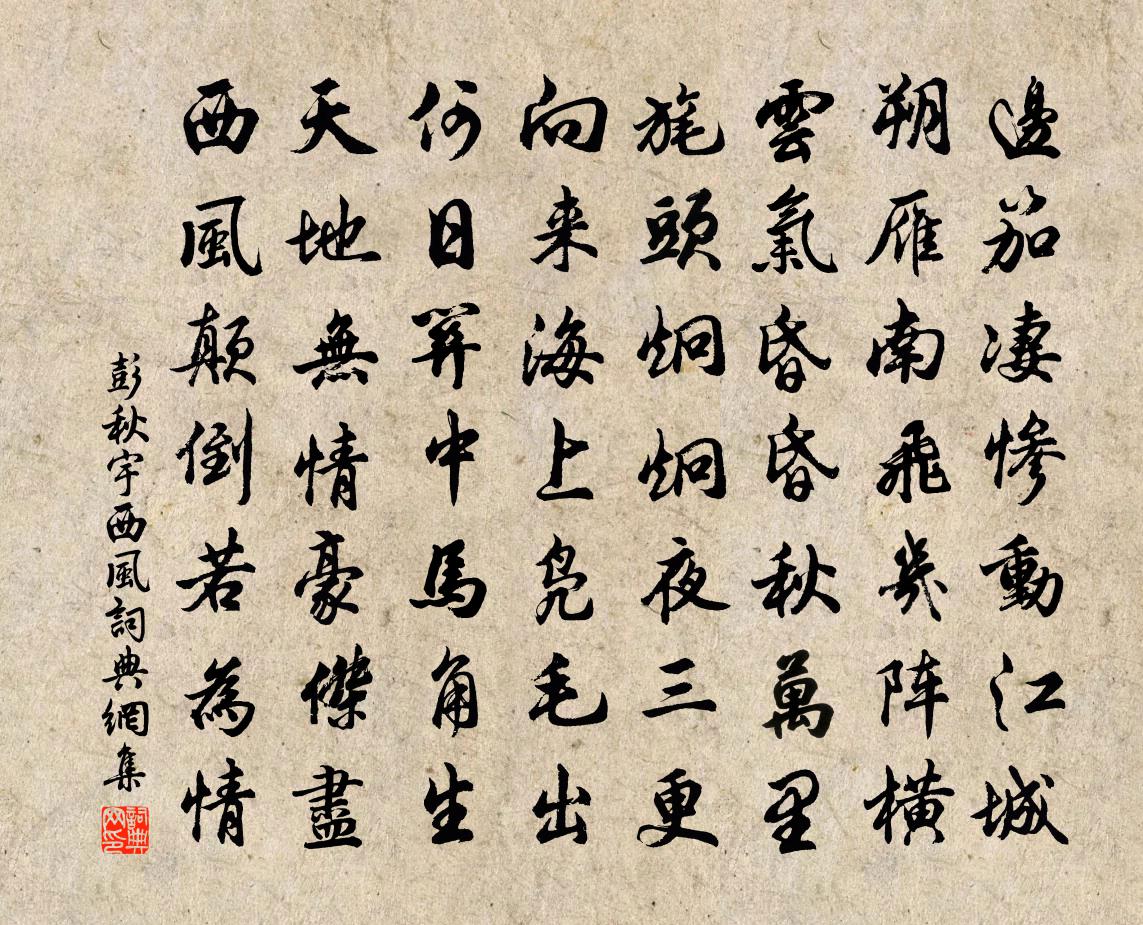 邊笳凄慘動江城
朔雁南飛幾阵橫
雲氣昏昏秋萬里
旄頭炯炯夜三更
向来海上凫毛出
何日筭中馬角生
天地無情豪傑盡
西風顛倒若為情
彭秋宇西風詞典網集
詞典网印